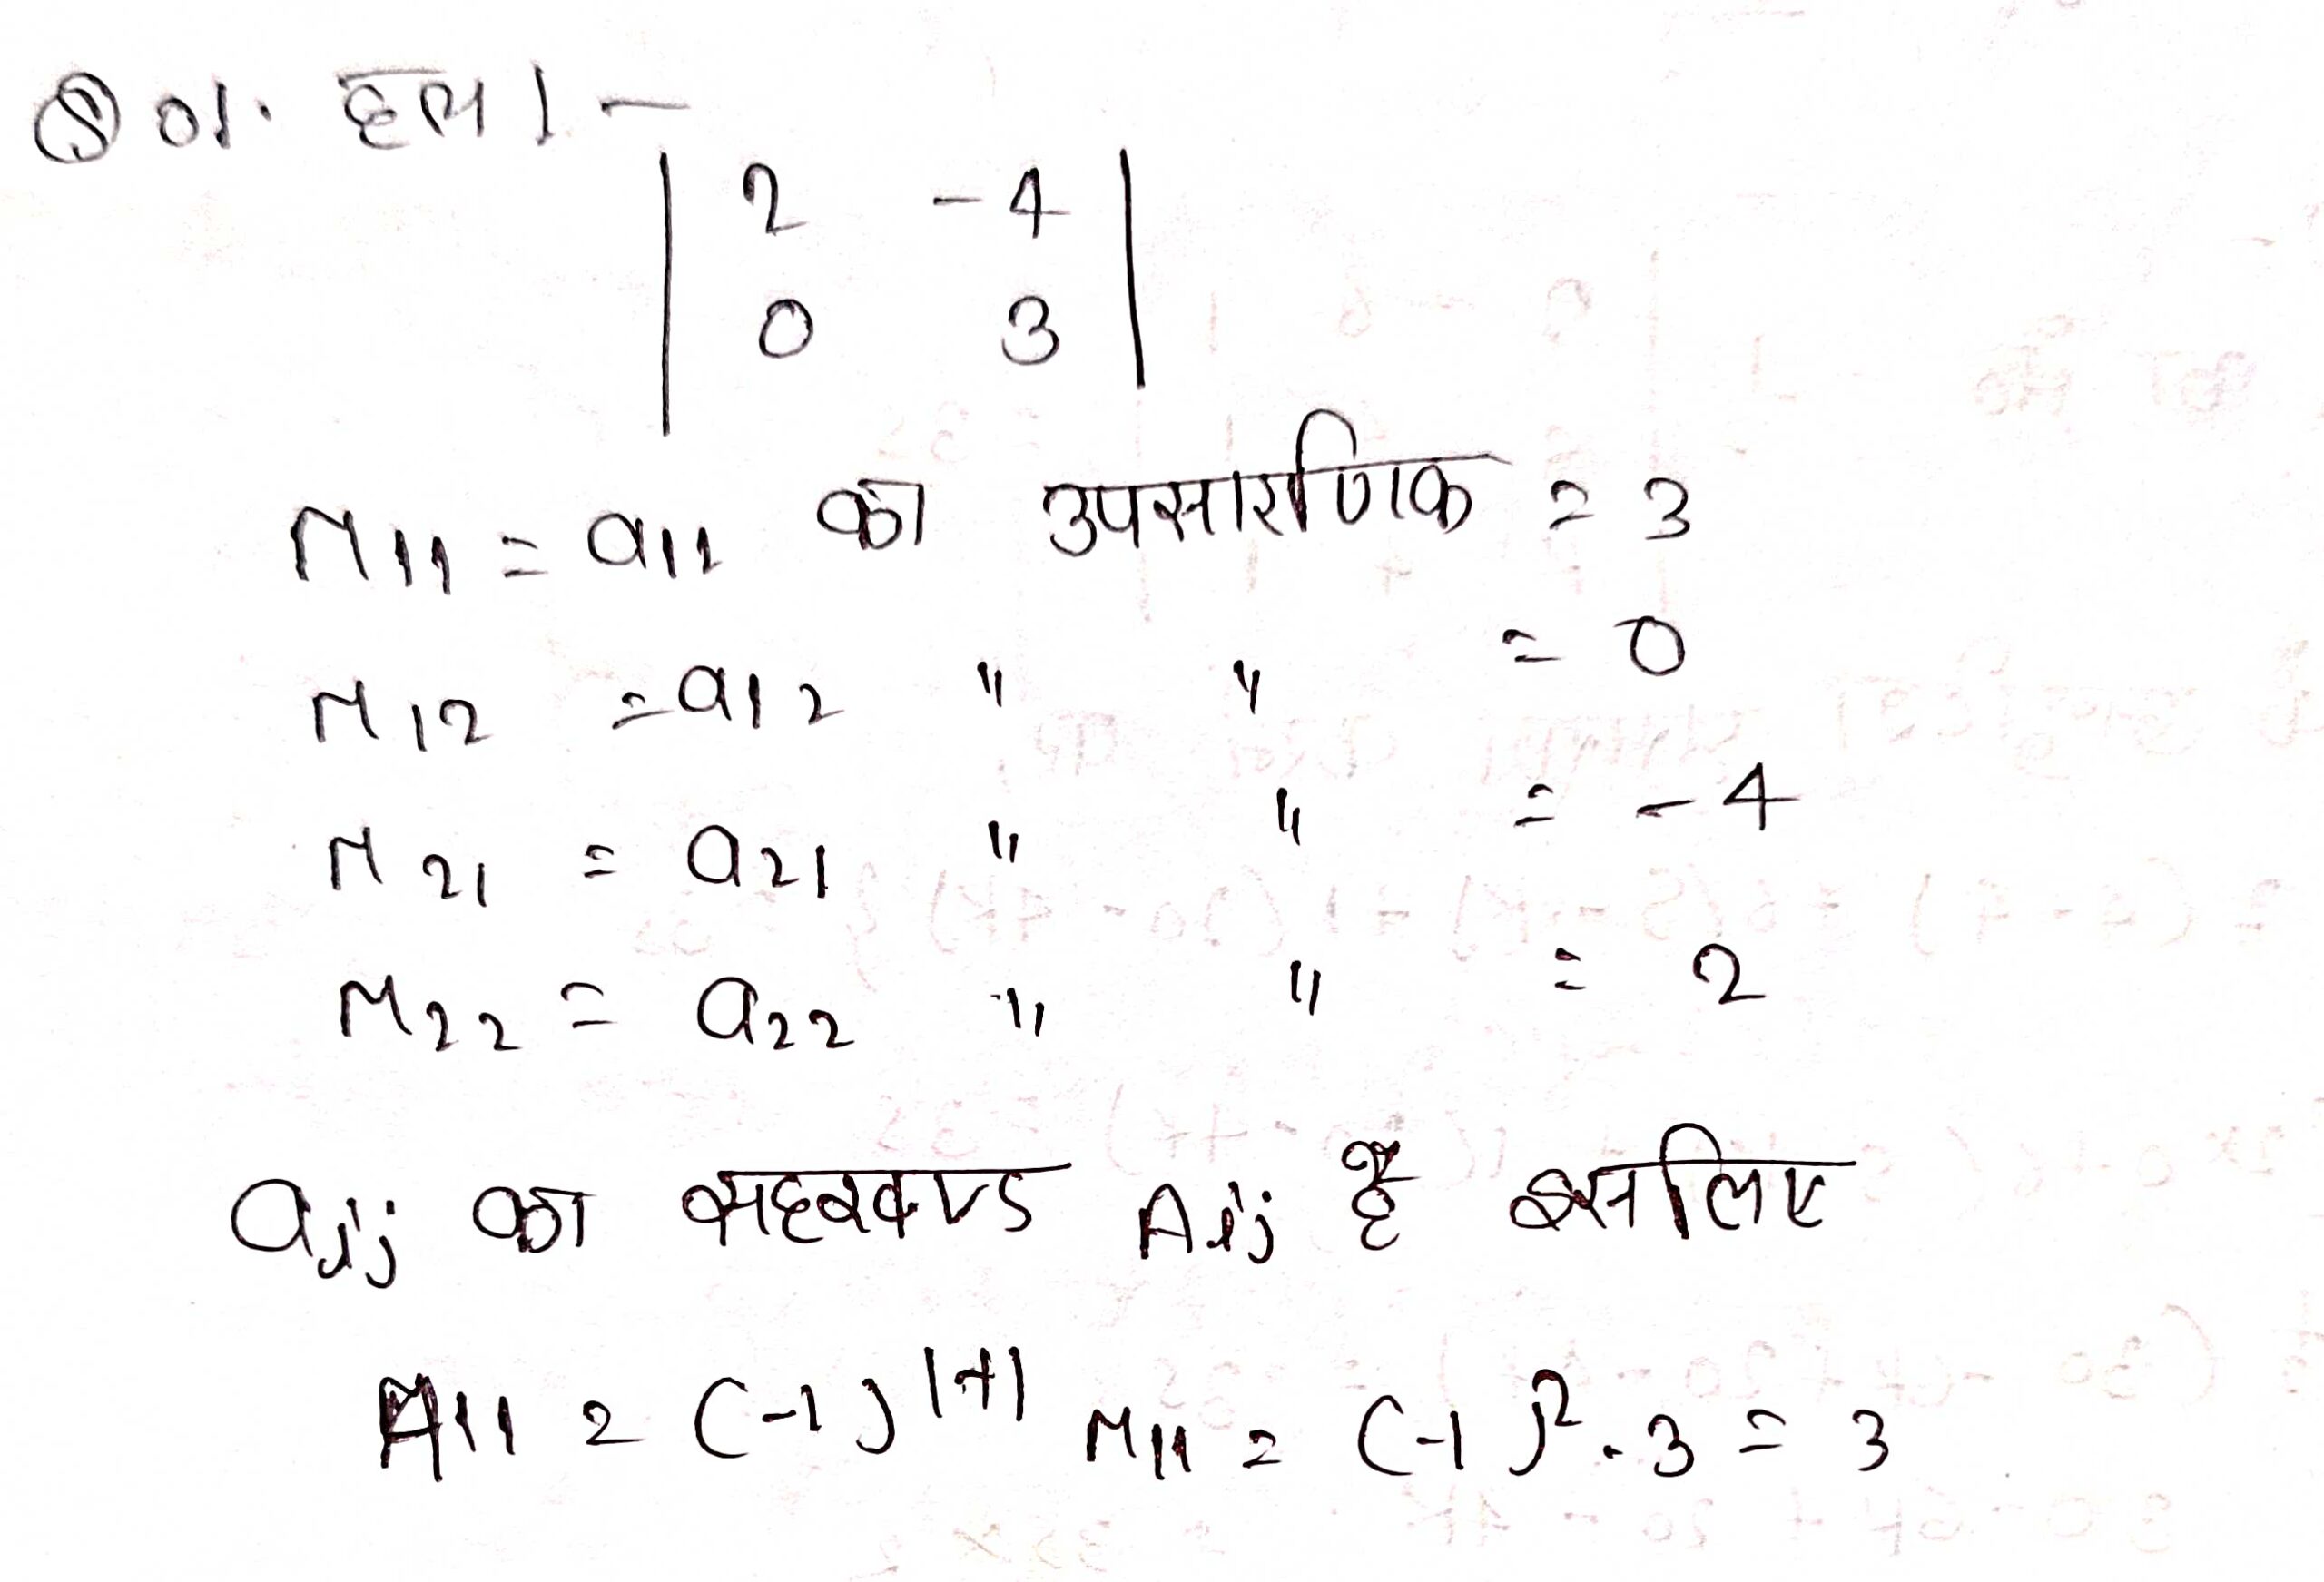 Ⓢ 01. हल । –
| 2 -4 |
| 0 3 |
M11 = a11 का उपसारणिक = 3
M12 = a12 " " = 0
M21 = a21 " " = -4
M22 = a22 " " = 2
aij का सहखण्ड Aij है इसलिए
A11 = (-1)^1+1 M11 = (-1)^2 . 3 = 3